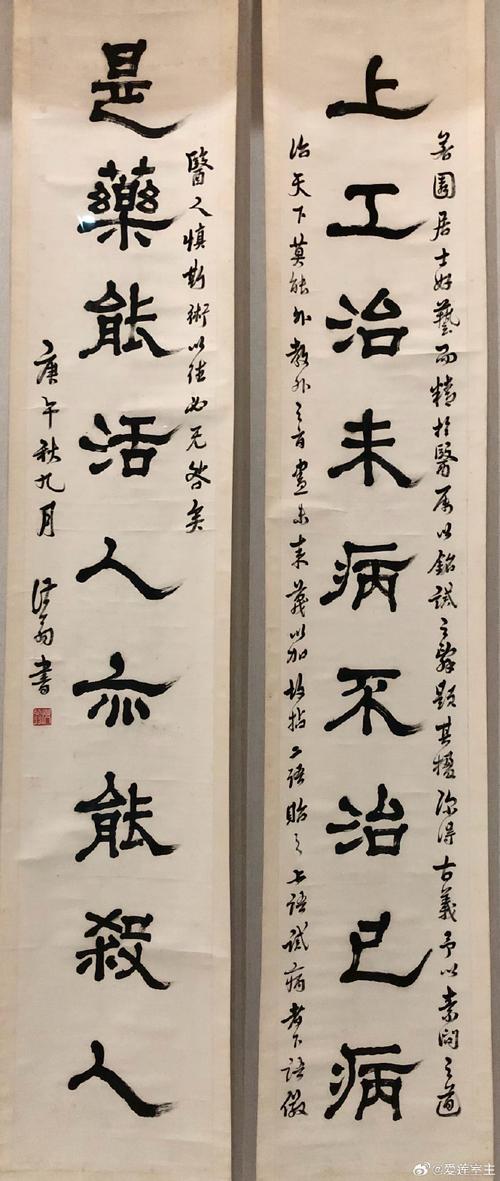 善園居士好藝而精於醫属以銘試之辭題其楹深得古義予以素問之道
上工治未病不治已病
治天下莫能外教外之盡未来蔑以加故拈二語貽之上語試病者下語儆
醫人慎斯術以往必无咎矣
是藥能活人亦能殺人
庚午秋九月 翁書